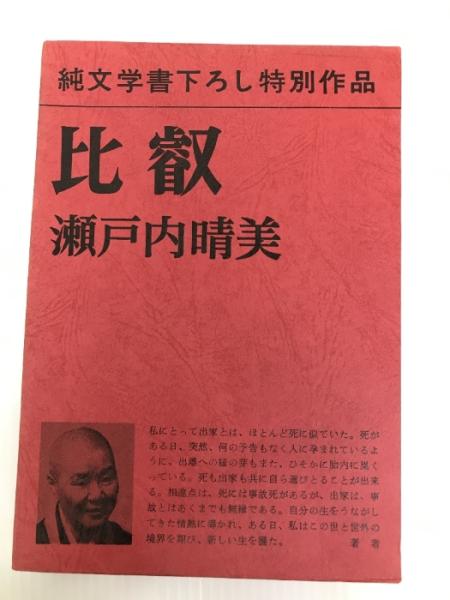 純文学書下ろし特別作品
比叡
瀬戸内晴美
私にとって出家とは、ほとんど死に似ていた。死が
ある日、突然、何の予告もなく人に孕まれているよ
うに、出離への疑の芽もまた、ひそかに胎内に置く
っている。死も出家も共に自ら選びとることが出来
る。相違点は、死には事故死があるが、出家は、事
故とはあくまでも無縁である。自分の生をうながし
てきた情熱に導かれ、ある日、私はこの世と世外の
境界を翔び、新しい生を獲た。
著者